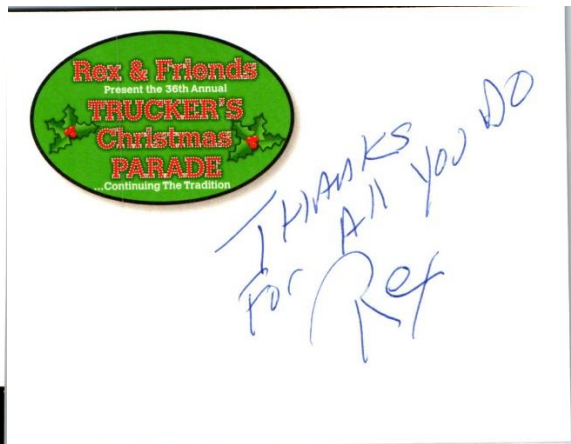 Rex & Friends
Present the 36th Annual
TRUCKER'S
Christmas
PARADE
...Continuing The Tradition
THANKS
For All You DO
Rex